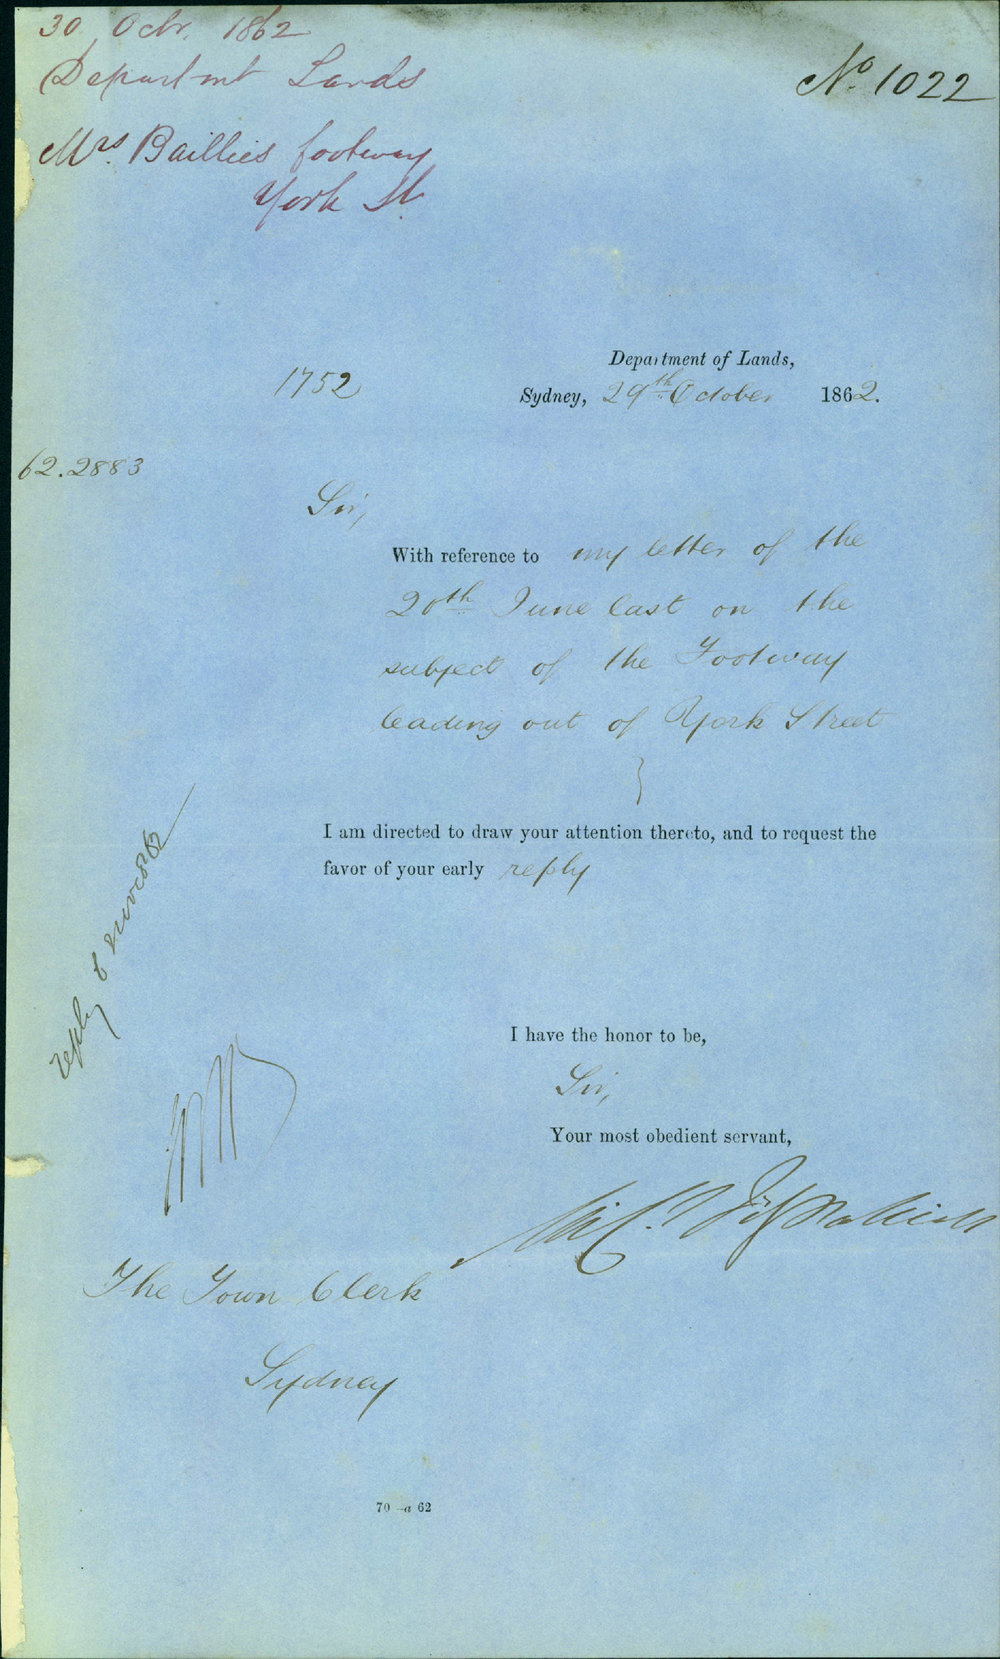 30 Octr. 1862
Departmt Lands
No. 1022
Mrs. Baillies footway
York St.
Department of Lands,
1752
Sydney, 29th October 1862.
62.2883
Sir,
With reference to my letter of the
20th June last on the
subject of the Footway
leading out of York Street
I am directed to draw your attention thereto, and to request the
favor of your early reply
reply 6 Nov 1862
I have the honor to be,
Sir,
Your most obedient servant,
Mich. Fitzpatrick
The Town Clerk
Sydney
70 —a 62